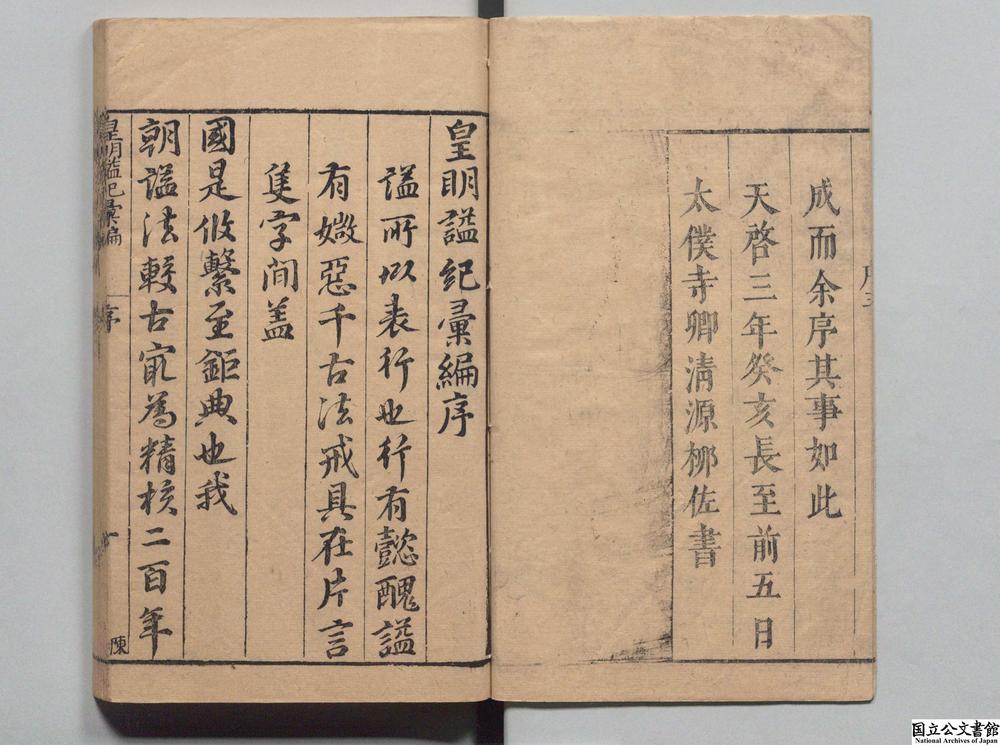 成而余序其事如此
天啓三年癸亥長至前五日
太僕寺卿清源栁佐書
皇明謚紀彙編序
謚所以表行也行有懿醜謚
有媺惡千古法戒具在片言
隻字間盖
國是攸繫至鉅典也我
朝謚法較古冣為精核二百年
皇明謚紀彙編
序
陳
国立公文書館
National Archives of Japan